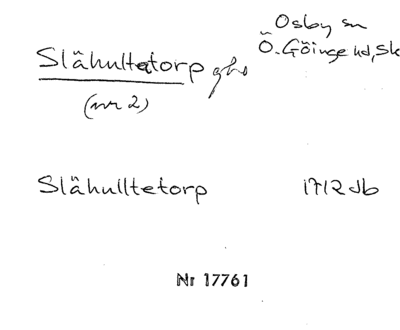 Osby sn
Ö. Göinge hd, Sk
Slähultatorp
(nr 2)
Slähulltetorp 1712 Jb
Nr 17761